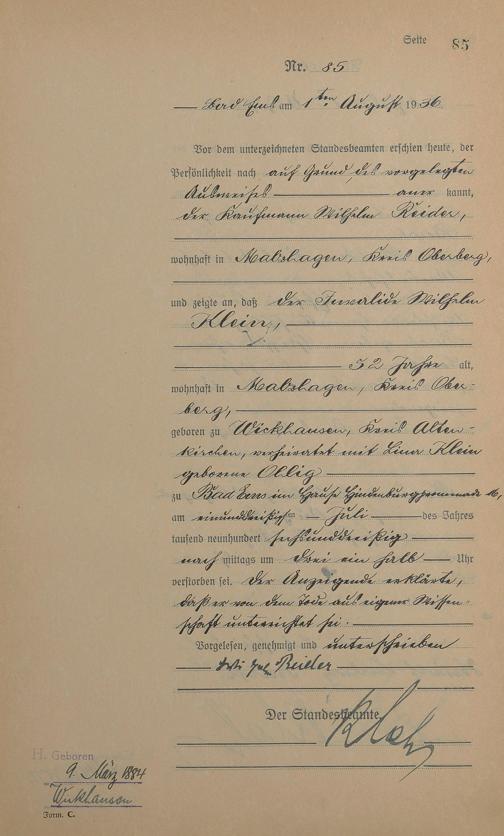 Seite 85
Nr. 85
Bad Ems am 1ten August 1936
Vor dem unterzeichneten Standesbeamten erschien heute, der
Persönlichkeit nach auf Grund des vorgelegten
Ausweises aner kannt,
der Kaufmann Wilhelm Reider,
wohnhaft in Malshagen, Kreis Oberberg,
und zeigte an, daß der Invalide Wilhelm
Klein,
52 Jahre alt,
wohnhaft in Malshagen, Kreis Ober-
berg,
geboren zu Wickhausen, Kreis Alten-
kirchen, verheiratet mit Lina Klein
geborene Ohlig
zu Bad Ems im Hause Hindenburgpromenade 16,
am einunddreißigsten Juli des Jahres
tausend neunhundert sechsunddreißig
nach mittags um drei ein halb Uhr
verstorben sei. Der Anzeigende erklärte,
daß er von dem Tode aus eigener Wissen-
schaft unterrichtet sei.
Vorgelesen, genehmigt und unterschrieben
Reider
Der Standesbeamte
H. Geboren
9. März 1884
Wickhausen
Form. C.